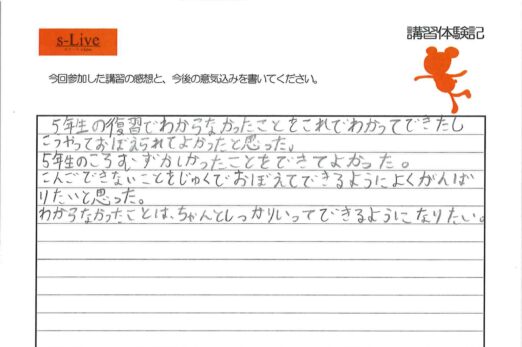 s-Live
講習体験記
今回参加した講習の感想と、今後の意気込みを書いてください。
5年生の復習でわからなかったことをこれでわかってできたし
こうやっておぼえられてよかったと思った。
5年生のころむずかしかったことをできてよかった。
こんごできないことをじゅくでおぼえてできるようによくがんば
りたいと思った。
わからなかったことは、ちゃんとしっかりいってできるようになりたい。